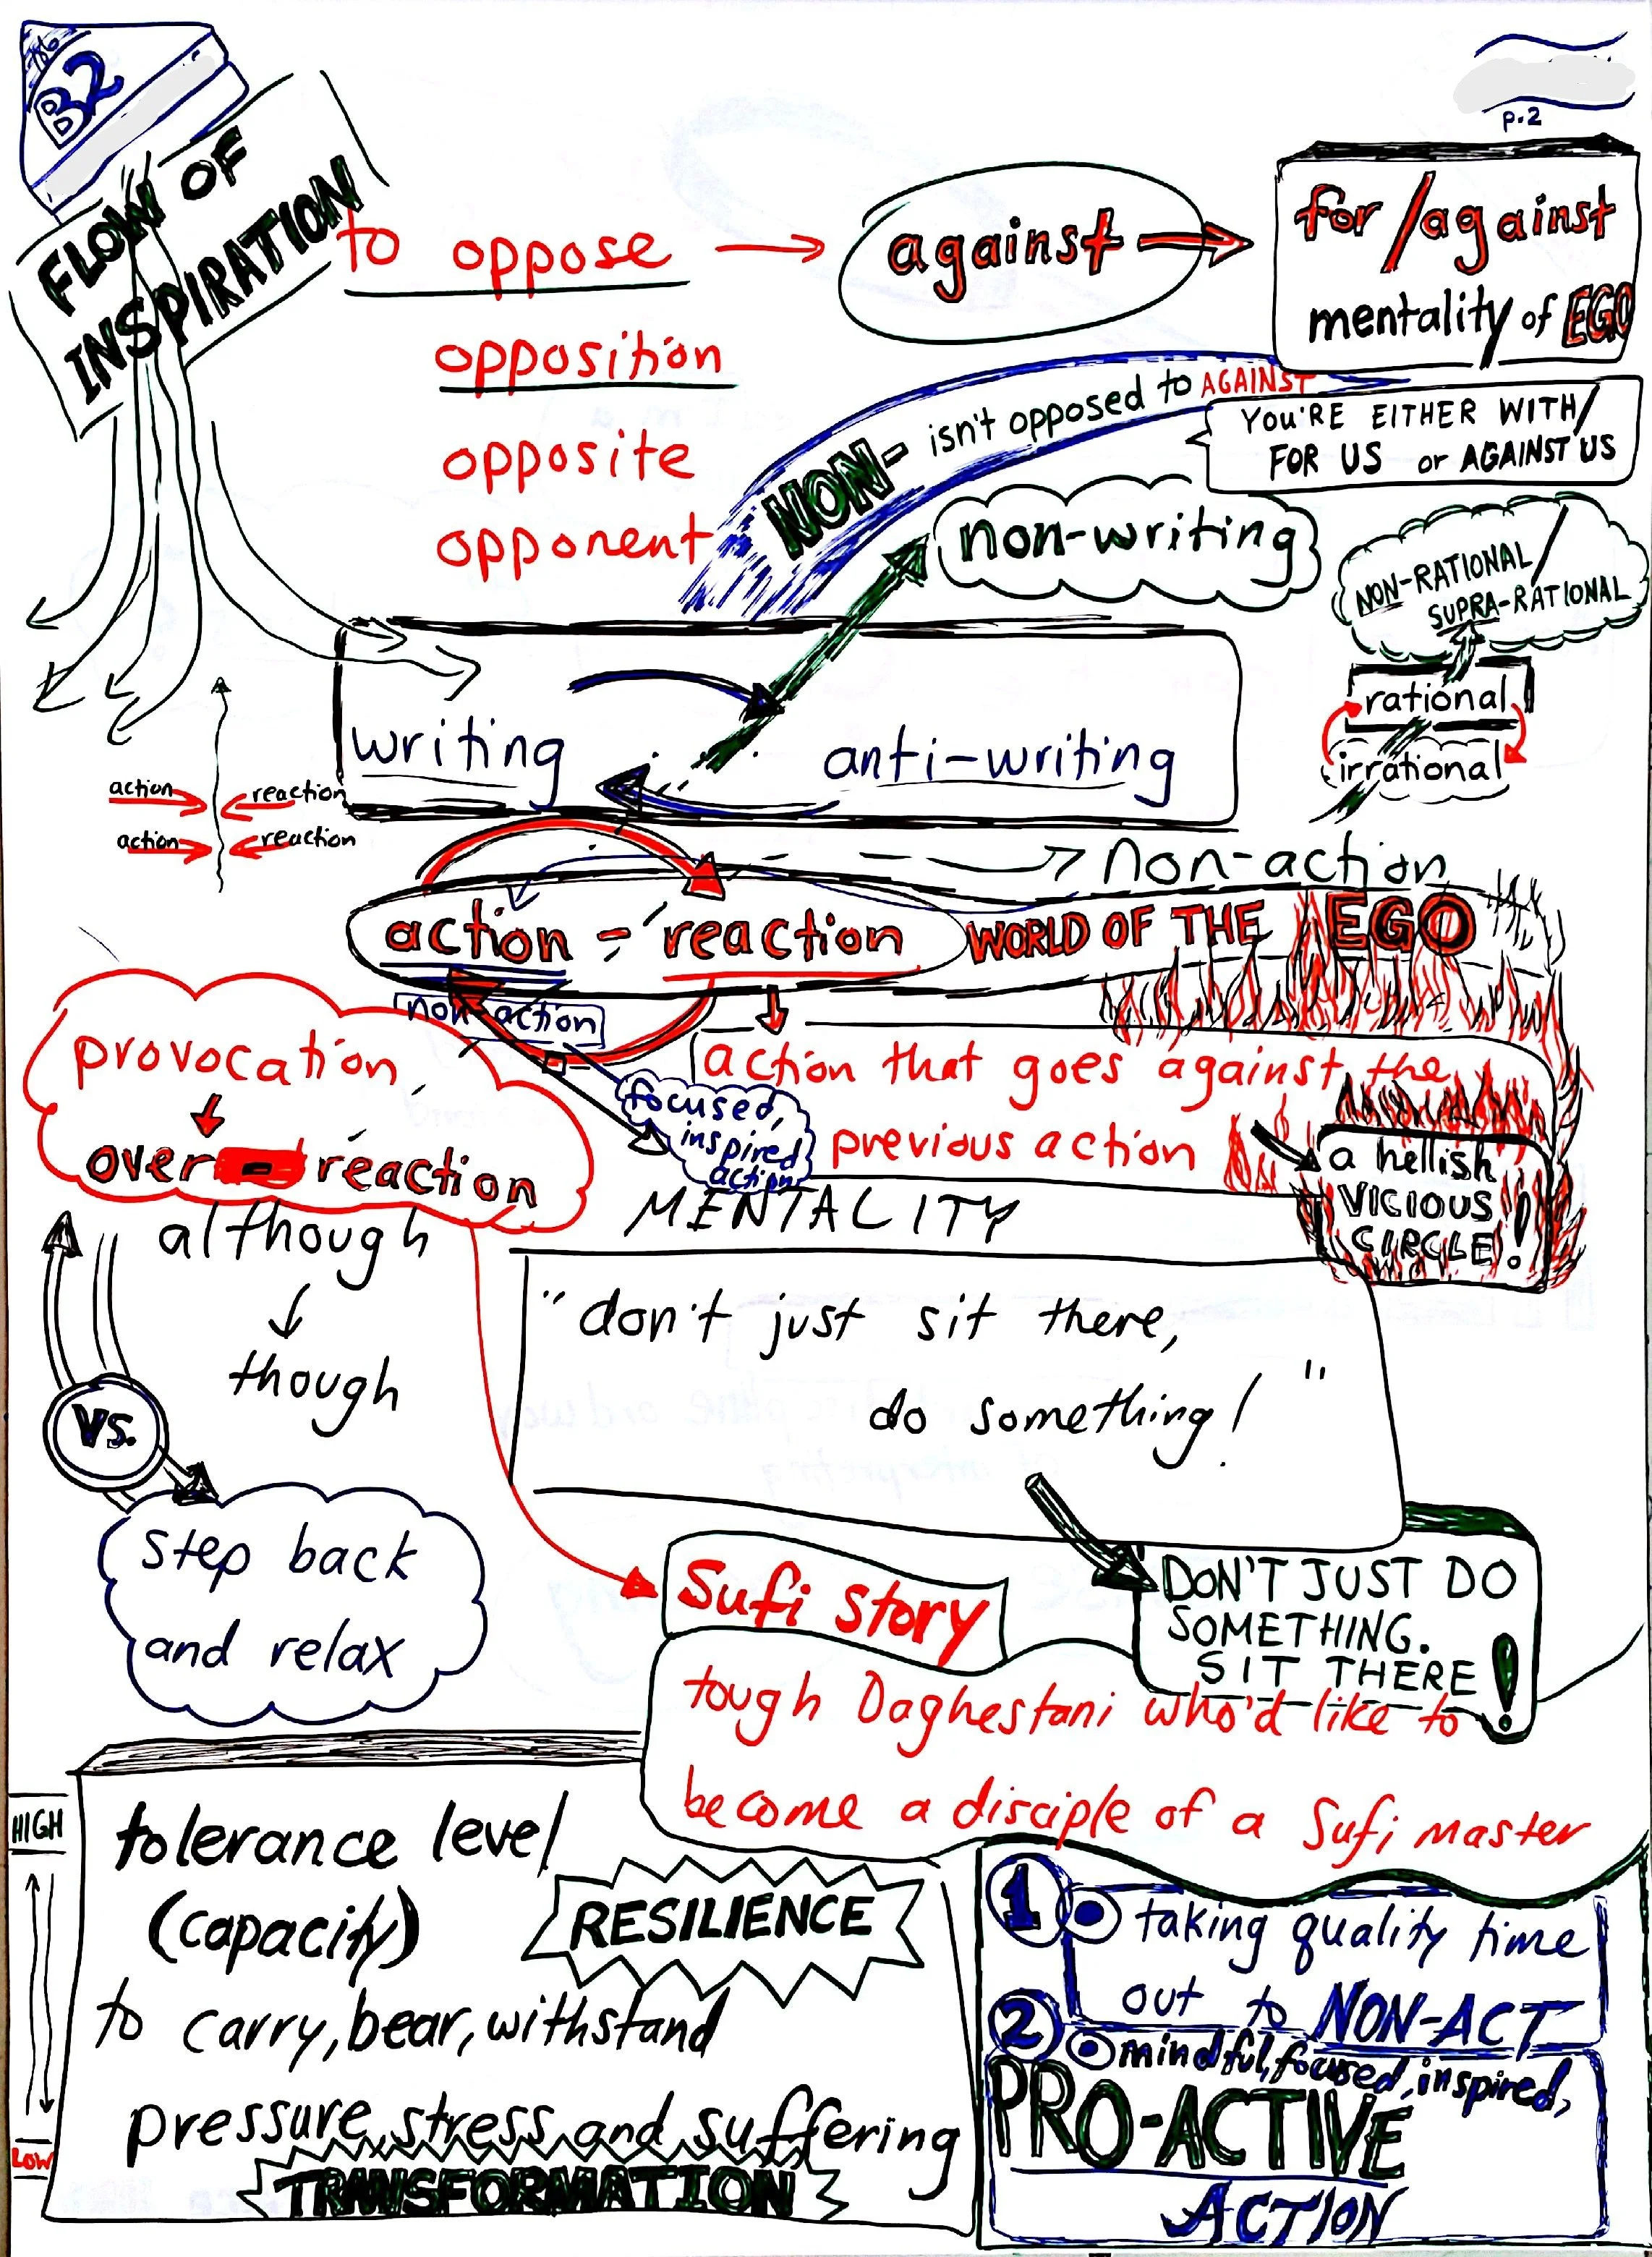 B2
p.2
FLOW OF
INSPIRATION
to oppose
against
for/against
mentality of EGO
opposition
opposite
opponent
NON- isn't opposed to AGAINST
YOU'RE EITHER WITH/
FOR US or AGAINST US
non-writing
NON-RATIONAL/
SUPRA-RATIONAL
rational
irrational
writing
anti-writing
action
reaction
action
reaction
non-action
action - reaction
WORLD OF THE EGO
non-action
action that goes against the
previous action
focused,
inspired
action
a hellish
VICIOUS
CIRCLE!
provocation
over-reaction
MENTALITY
although
though
"don't just sit there,
do something!"
vs.
step back
and relax
DON'T JUST DO
SOMETHING.
SIT THERE!
Sufi story
tough Daghestani who'd like to
become a disciple of a Sufi master
HIGH
LOW
tolerance level
(capacity)
RESILIENCE
to carry, bear, withstand
pressure, stress, and suffering
TRANSFORMATION
1
taking quality time
out to NON-ACT
2
mindful, focused, inspired,
PRO-ACTIVE
ACTION